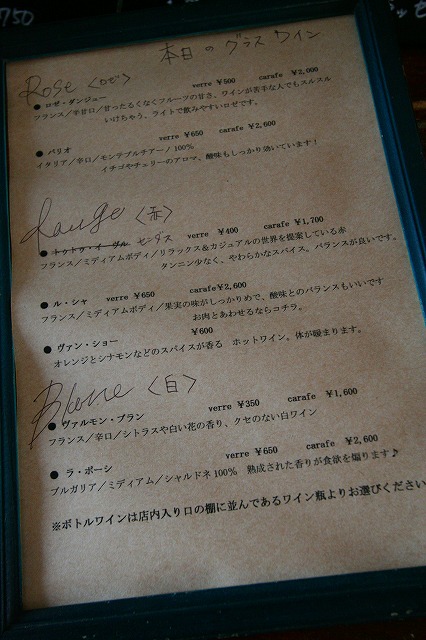 750
本日のグラスワイン
Rose 〈ロゼ〉
● ロゼ・ダンジュー verre ￥500 carafe ￥2,000
フランス／辛甘口／甘ったるくなくフルーツの甘さ、ワインが苦手な人でもスルスル
いけちゃう、ライトで飲みやすいロゼです。
● バリオ verre ￥650 carafe ￥2,600
イタリア／辛口／モンテプルチアーノ 100％
イチゴやチェリーのアロマ、酸味もしっかり効いています！
Rouge 〈赤〉
● トゥトゥ・イーヴル センダス verre ￥400 carafe ￥1,700
フランス／ミディアムボディ／リラックス＆カジュアルの世界を提案している赤
タンニン少なく、やわらかなスパイス。バランスが良いです。
● ル・シャ verre ￥650 carafe￥2,600
フランス／ミディアムボディ／果実の味がしっかりめで、酸味とのバランスもいいです
お肉とあわせるならコチラ。
● ヴァン・ショー ￥600
オレンジとシナモンなどのスパイスが香る ホットワイン。体が暖まります。
Blanc 〈白〉
● ヴァルモン・ブラン verre ￥350 carafe ￥1,600
フランス／辛口／シトラスや白い花の香り、クセのない白ワイン
● ラ・ポーシ verre ￥650 carafe ￥2,600
ブルガリア／ミディアム／シャルドネ 100％ 熟成された香りが食欲を煽ります♪
※ボトルワインは店内入り口の棚に並んであるワイン瓶よりお選びください